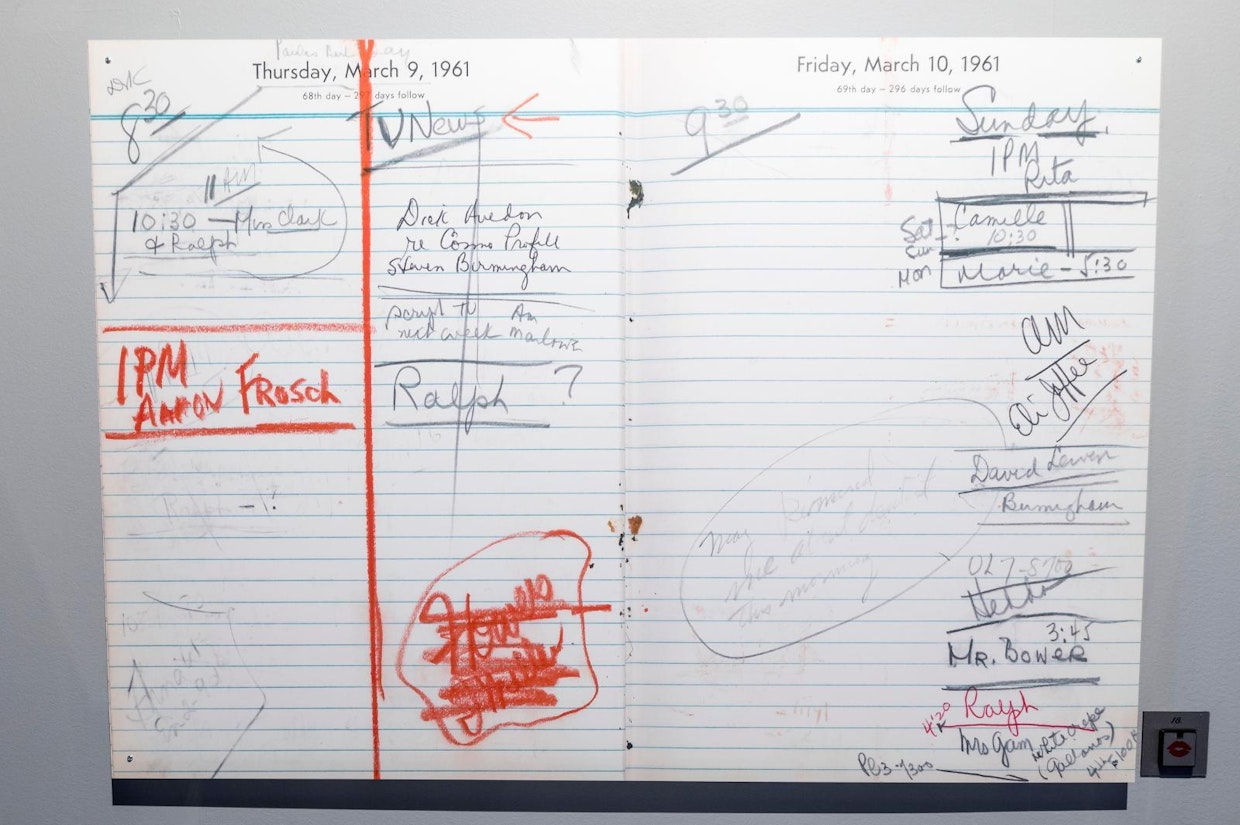 Thursday, March 9, 1961
68th day – 297 days follow
8 30
11 AM
10:30 – Mrs Clark
& Ralph
1 PM
AARON FROSCH
Ralph – 1?
TV News
Dick Avedon
re Cosmo Profile
Steven Birmingham
script to Am
next week Marlowe
Ralph ?
Friday, March 10, 1961
69th day – 296 days follow
9 30
Sunday,
1 PM
Rita
Sat
Sun
Mon
Camille
10:30
Marie – 5:30
AM
Eli Joffee
David Lewin
Birmingham
this morning
UL7-5700
3:45
MR. BOWER
4:20
Ralph
Mrs Gam
white crepe
(Galanos)
18.